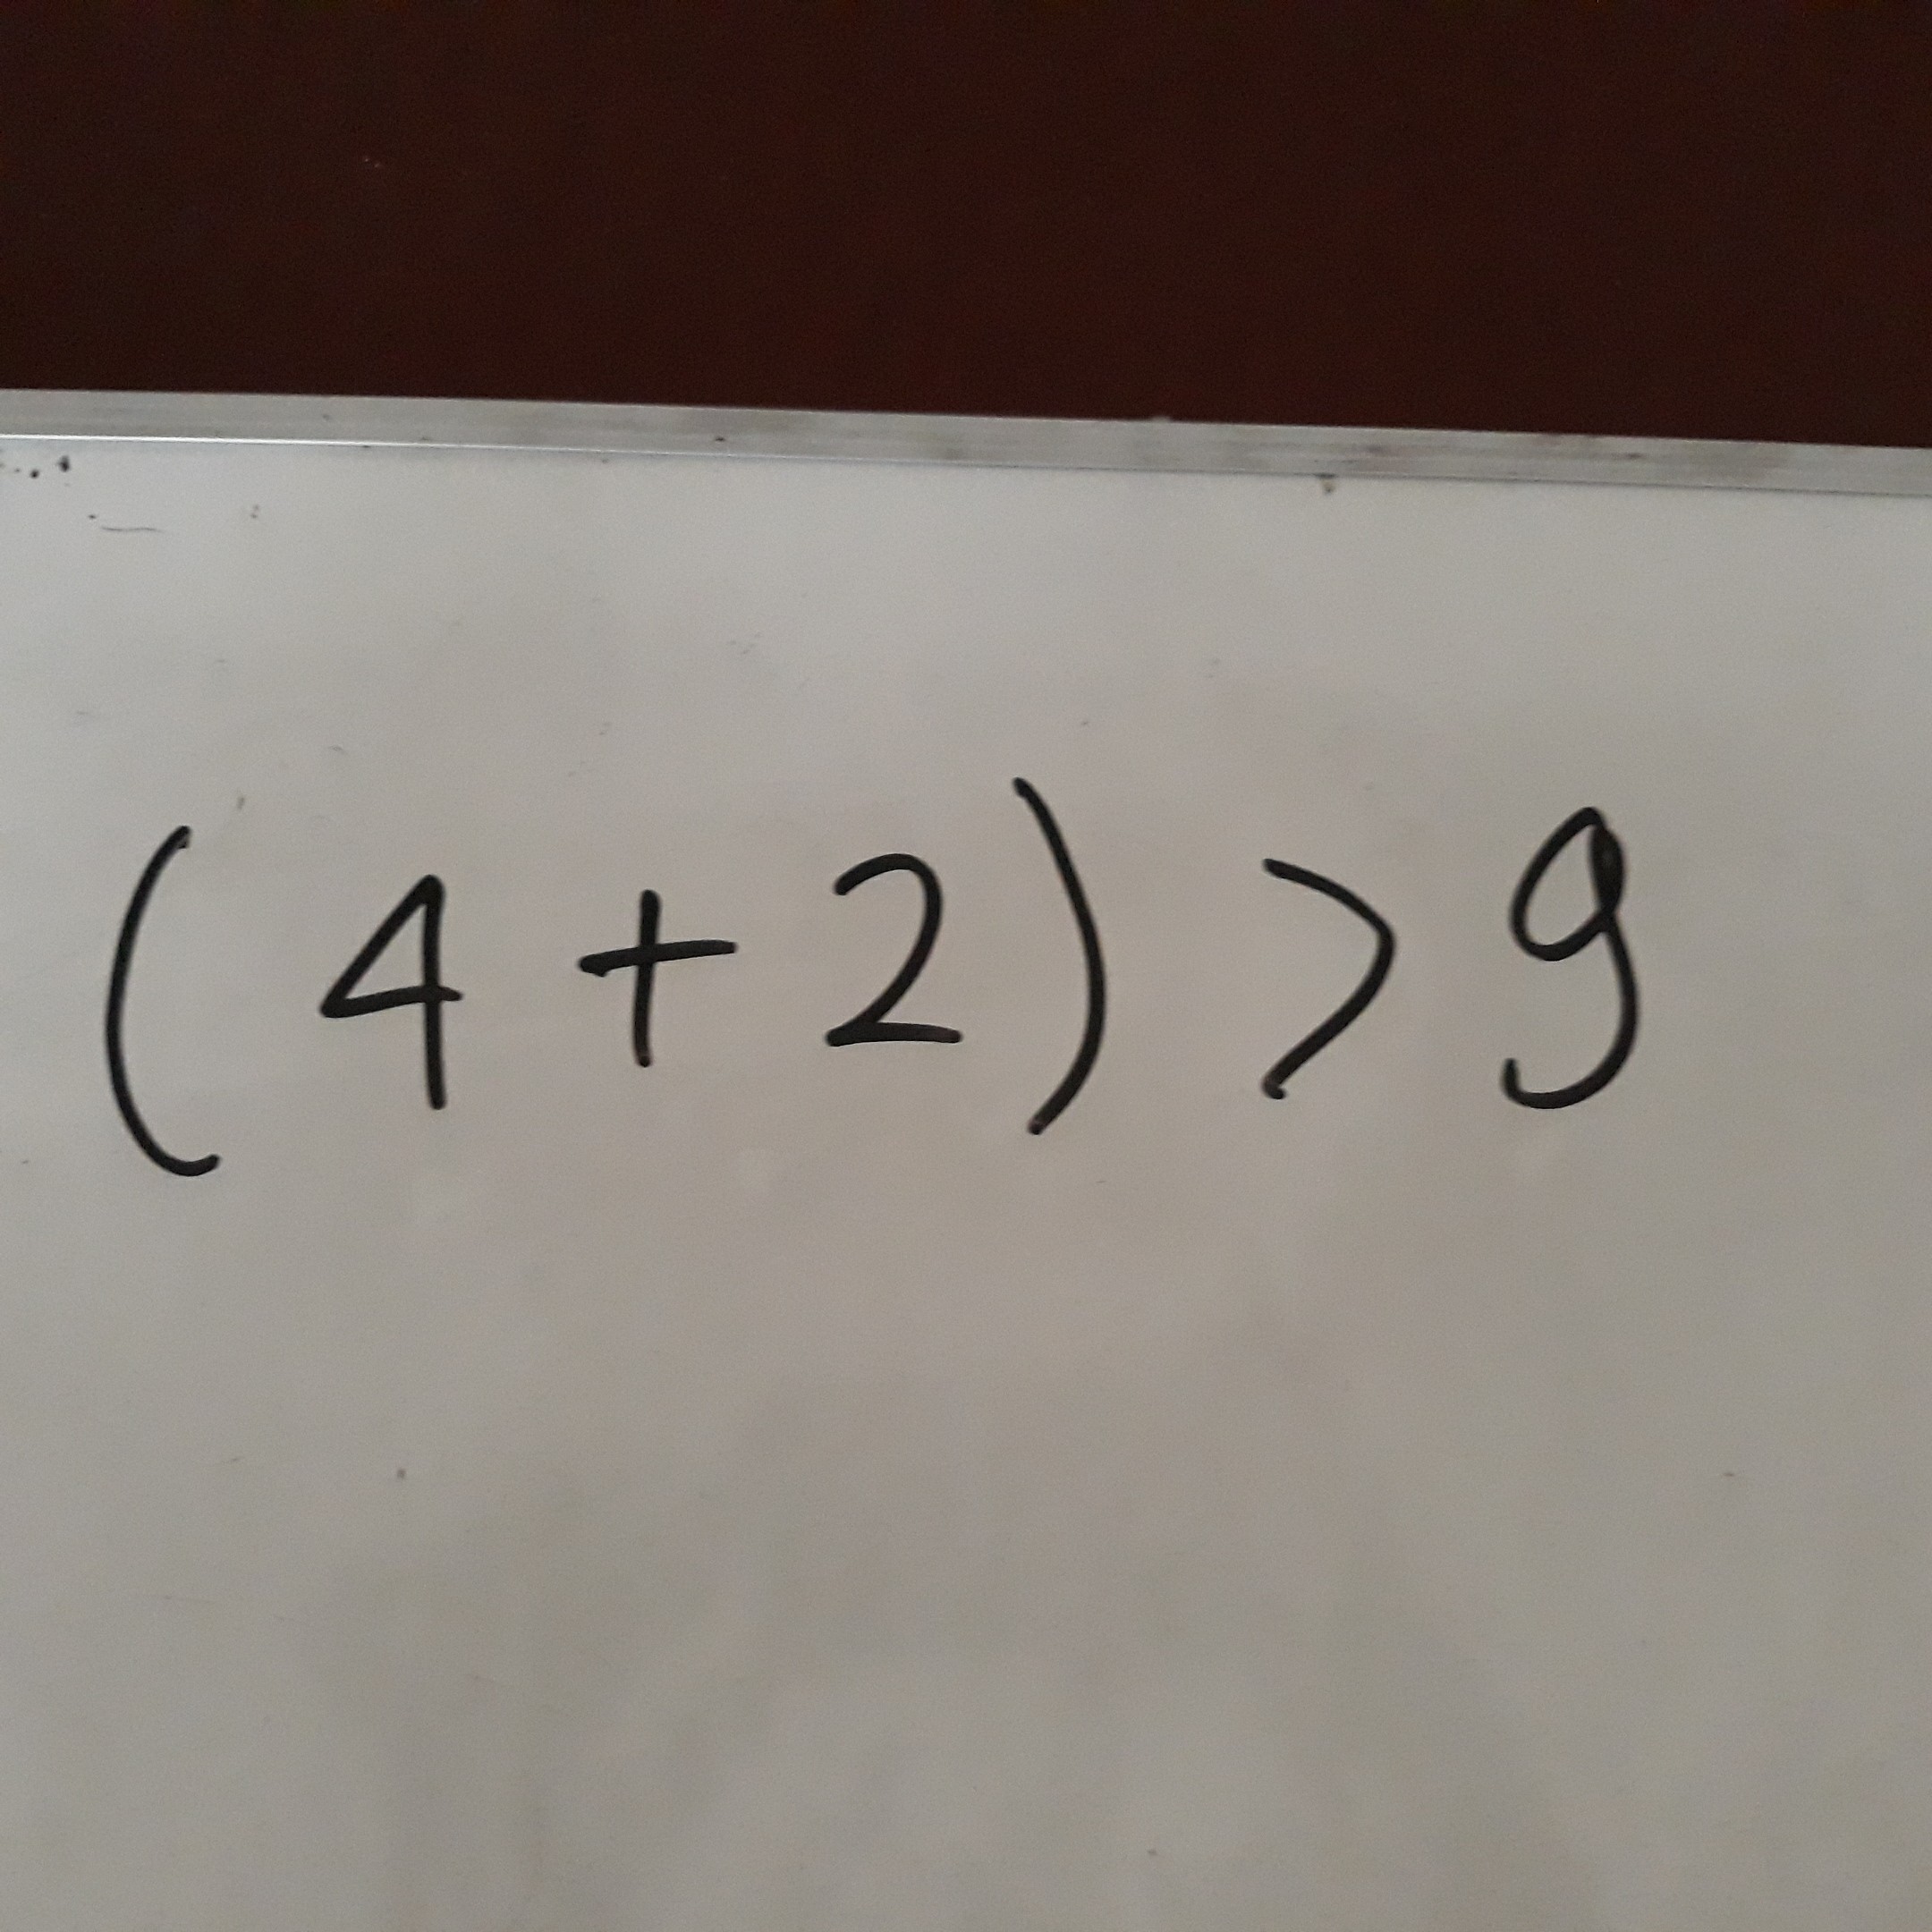 ( 4 + 2 ) > 9